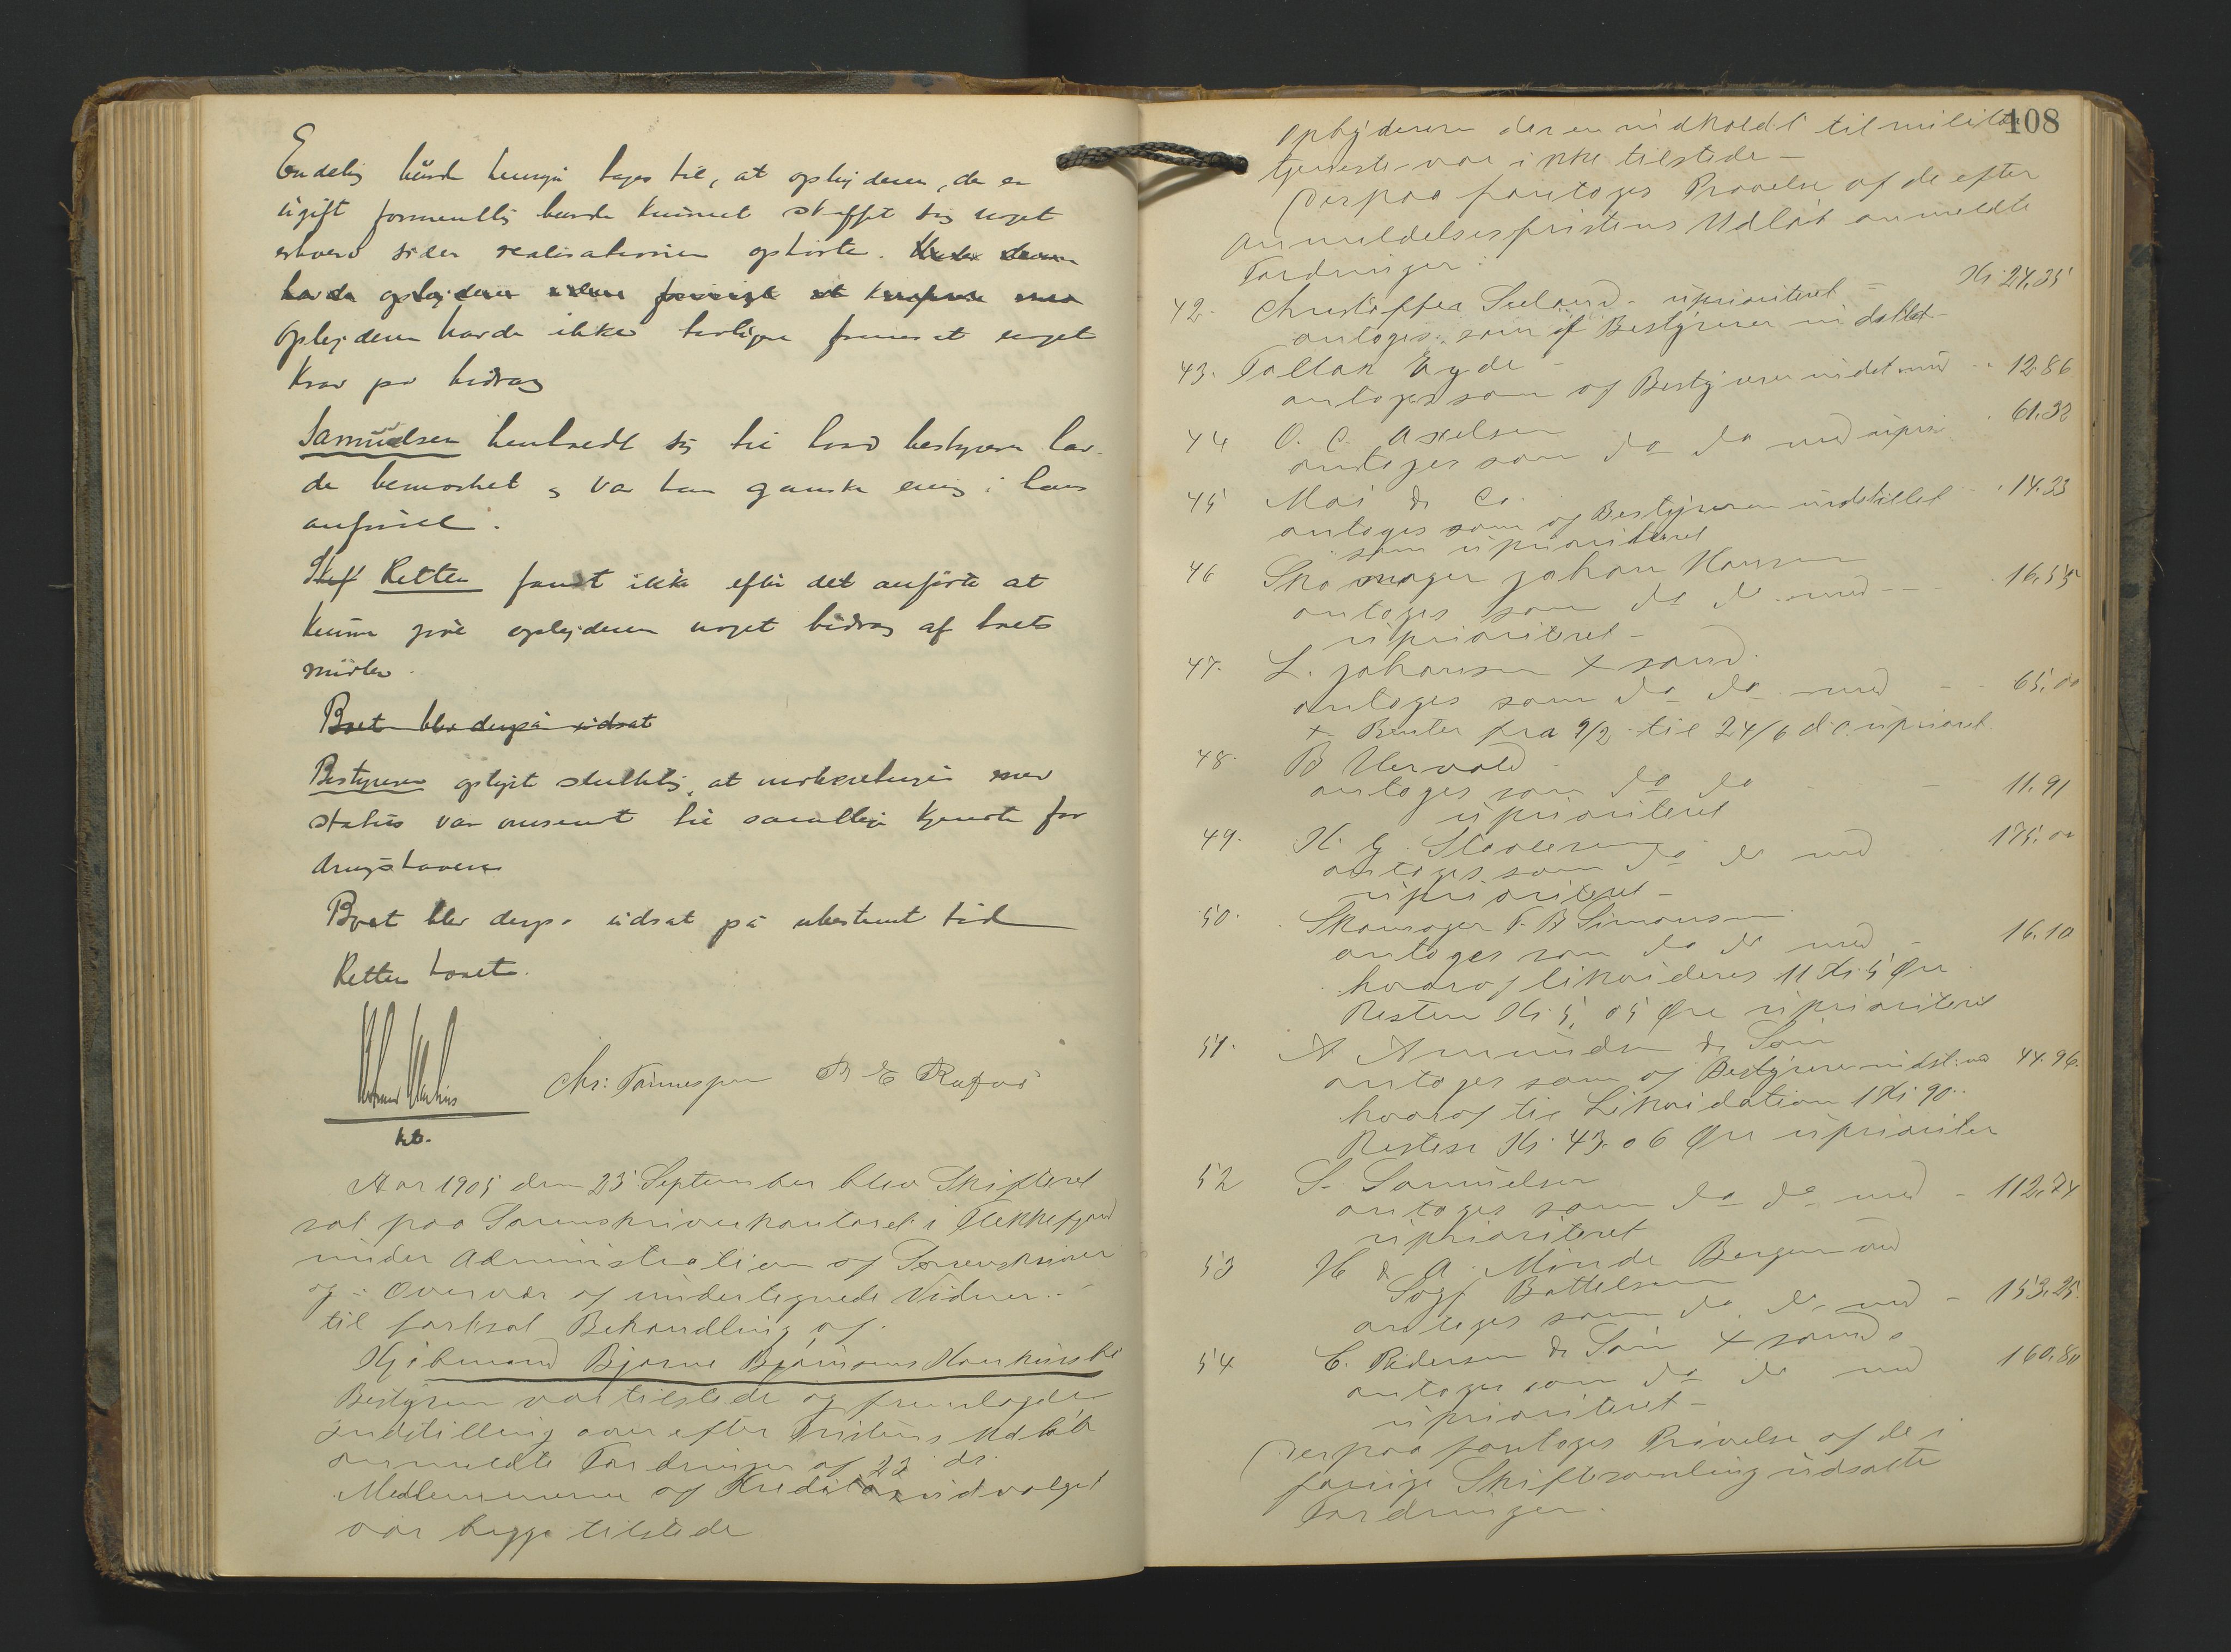 Endelig burde hensyn tages til, at opbyderen, der er
ugift formentlig burde kunnet skaffet sig noget
erhverv siden realisationen ophørte.
havde opbyderen
Opbyderen havde ikke tidligere fremsat noget
Krav på bidrag
Samuelsen henholdt sig til hvad bestyreren hav-
de bemerket og var han ganske enig i hans
anførsel.
Retten fandt ikke efter det anførte at
kunne give opbyderen noget bidrag af boets
midler.
Boet blev derpå udsat
Bestyreren oplyste sluttelig, at indberetningen med
status var omsendt til samtlige kjendte for
dringshavere
Boet blev derpå udsat på ubestemt tid
Retten hævet.
kst.
Chr: Tønnessen B E Rafoss
Aar 1905 den 25 September blev Skifteret
sat paa Sorenskriverkontoret i Flekkefjord
under Administration af Sorenskriver
og i Overvær af undertegnede Vidner..
til fortsat Behandling af.
Kjøbmand Bjarne Bjørnsons Konkursbo
Bestyreren var tilstede og fremlagde
Indstilling over efter Fristens Udløb
anmeldte Fordringer af 22 ds.
Medlemmerne af Kreditorudvalget
var begge tilstede
108
Opbyderen der er indkaldt til militær
tjeneste var ikke tilstede –
Derpaa foretoges Prøvelse af de efter
Anmeldelsesfristens Udløb anmeldte
Fordringer:
42. Christoffer Seeland – uprioriteret – Kr 24,35
antoges som af Bestyreren indstillet –
43. Tallak Eyde –
antoges som af Bestyreren indst. med – 12.86
44 O. C. Axelsen 61.32
antoges som do do med upri
45 Moi & Co. 14.33
antoges som af Bestyreren indstillet
som uprioriteret
46 Skomager Johan Hansen
antoges som do do med – – 16,55
uprioriteret –
47. L. Johansen + samd.
antoges som do do med – – 65,00
+ Renter fra 9/2 til 24/6 d.a. uprioret.
48. B Uervold –
antoges som do do – 11.91
uprioriteret
49. K. G. 175.00
antoges som do do med
uprioriteret –
50. Skomager T. B Simonsen
antoges som do do med – 16.10
hvoraf likvideres 11 Kr 5 Øre
Resten Kr 5, 05 Øre uprioriteret
51. A Amundsen & Søn
antoges som af Bestyreren indst. med 44.96.
hvoraf til Likvidation 1 Kr 90..
Resten Kr. 43. 06 Øre uprioriter
52 S. Samuelsen
antoges som do do med – 112,74
uprioriteret
53 H & A. Minde Bergen ved
Sagf Bottelsen
antoges som do do med – 153.25.
54 C. Pedersen & Søn + samd.
antoges som do do med 160.80
uprioriteret –
Derpaa foretoges Prøvelse af de i
forrige Skiftesamling udsatte
Fordringer.